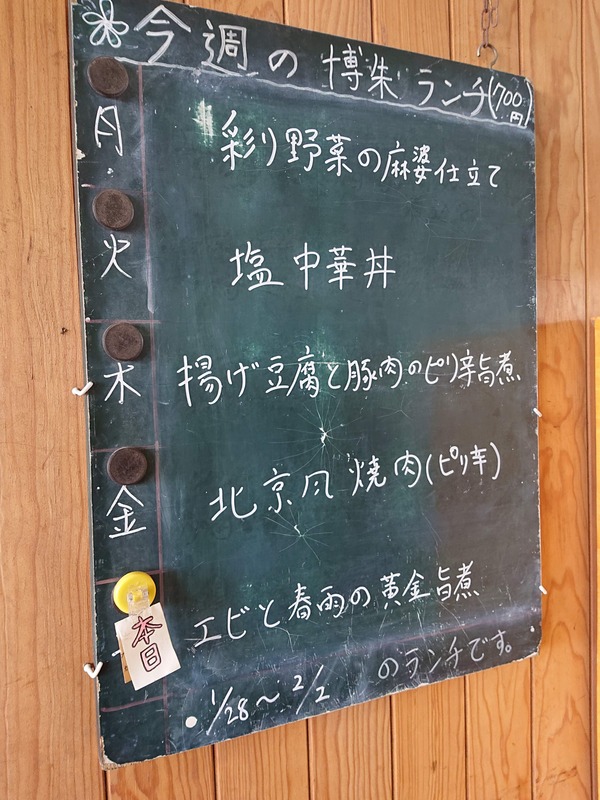 今週の博朱ランチ(700円)
月 彩り野菜の麻婆仕立て
火 塩中華丼
木 揚げ豆腐と豚肉のピリ辛旨煮
金 北京風焼肉(ピリ辛)
本日 エビと春雨の黄金旨煮
・1/28〜2/2 のランチです。